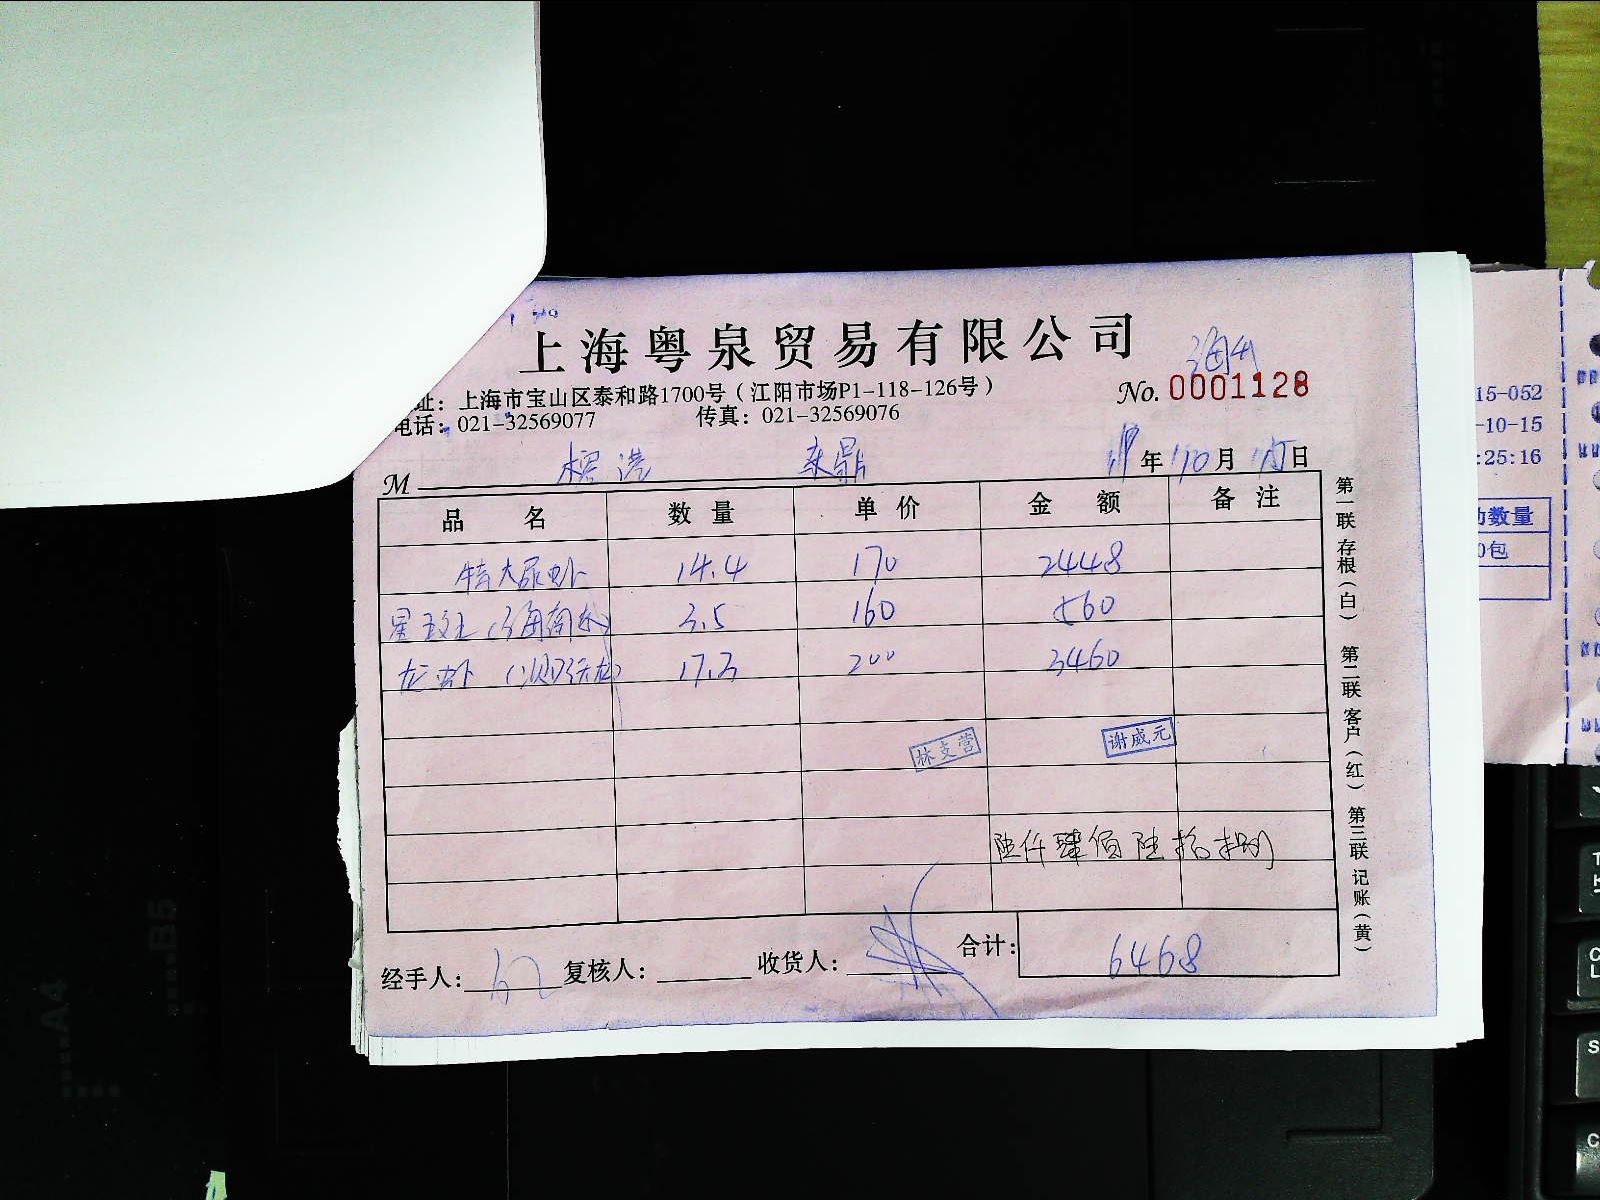 上海粤泉贸易有限公司
址：上海市宝山区泰和路1700号（江阳市场P1-118-126号）
No. 0001128
电话：021-32569077 传真：021-32569076
M 年 10 月 15 日
品名 数量 单价 金额 备注
特大尿虾 14.4 170 2448
星斑（海南东） 3.5 160 560
龙虾 17.3 200 3460
林支营 谢威元
陆仟肆佰陆拾捌
合计： 6468
经手人： 复核人： 收货人：
第一联 存根（白） 第二联 客户（红） 第三联 记账（黄）
15-052
-10-15
:25:16
数量
0包
A4
B5